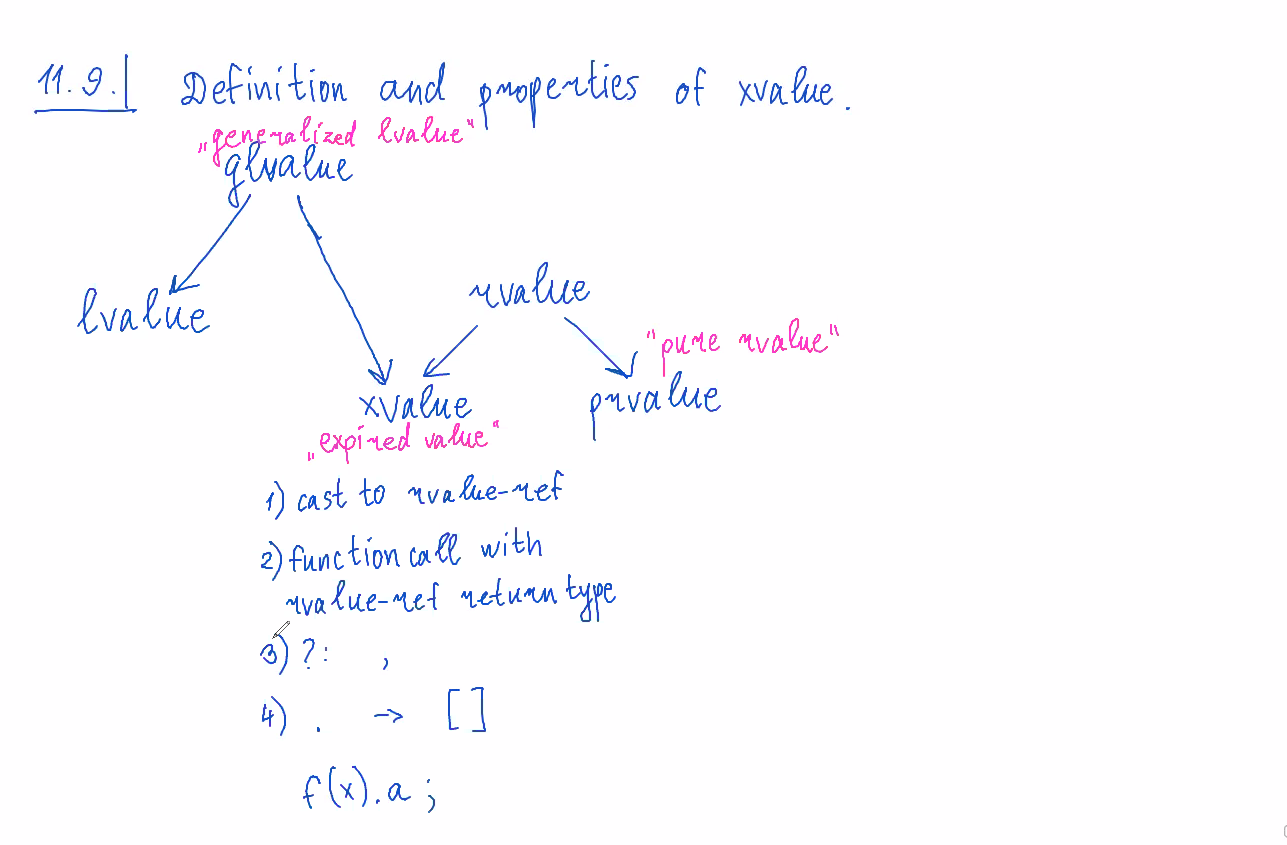 11.9. Definition and properties of xvalue.
„generalized lvalue“
glvalue
lvalue
rvalue
"pure rvalue"
xvalue
prvalue
„expired value“
1) cast to rvalue-ref
2) function call with
rvalue-ref return type
3) ?: ,
4) . -> []
f(x).a ;